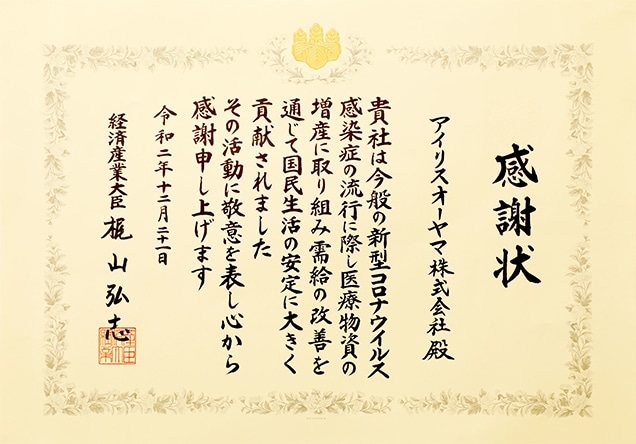 感謝状
アイリスオーヤマ株式会社殿
貴社は今般の新型コロナウイルス
感染症の流行に際し医療物資の
増産に取り組み需給の改善を
通じて国民生活の安定に大きく
貢献されました
その活動に敬意を表し心から
感謝申し上げます
令和二年十二月二十一日
経済産業大臣 梶山弘志